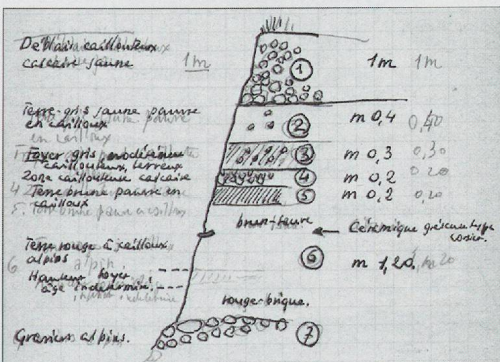 Déblai caillouteux
calcaire jaune
1m
①
1 m
1 m
Terre gris jaune pauvre
en cailloux
②
m 0,4
0,40
Foyer gris
caillouteux, terreux
③
m 0,3
0,30
Zone caillouteuse calcaire
④
m 0,2
0,20
Terre brune pauvre en
cailloux
⑤
m 0,2
0,20
brun-fauve
Céramique gréseuse type
Terre rouge à cailloux
alpins
⑥
m 1,20
Hauteur foyer
âge indéterminé
rouge-brique.
Graviers alpins.
⑦